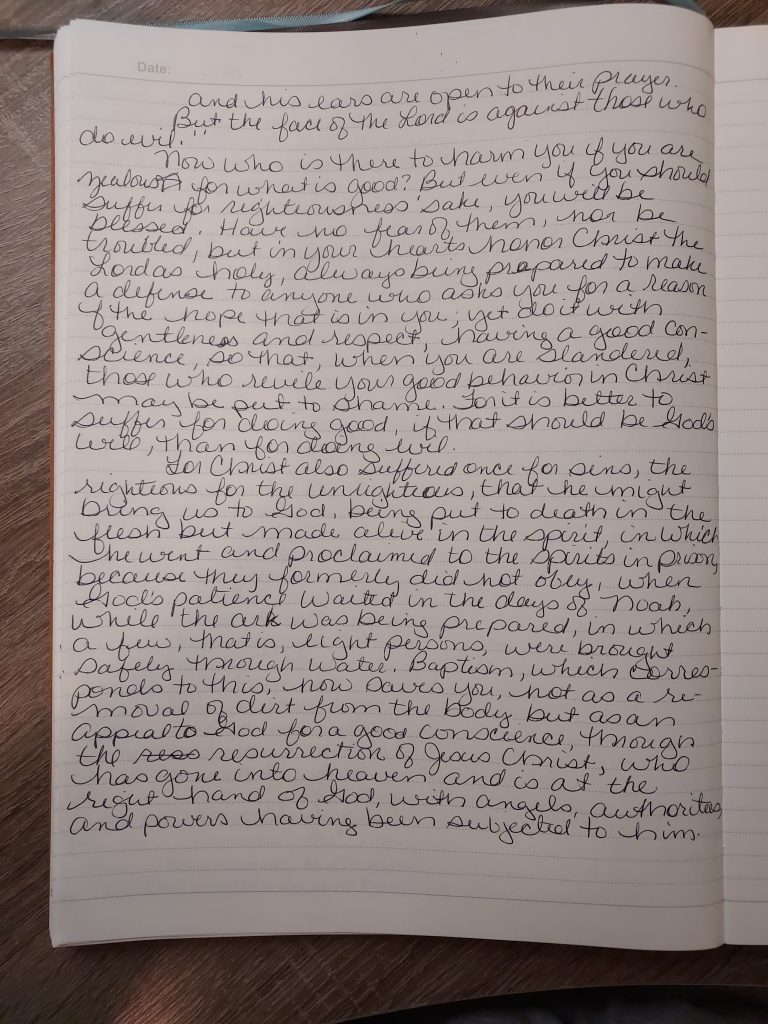 Date:
and his ears are open to their prayer.
But the face of the Lord is against those who
do evil."
Now who is there to harm you if you are
zealous for what is good? But even if you should
suffer for righteousness' sake, you will be
blessed. Have no fear of them, nor be
troubled, but in your hearts honor Christ the
Lord as holy, always being prepared to make
a defense to anyone who asks you for a reason
f the hope that is in you; yet do it with
gentleness and respect, having a good con-
science, so that, when you are slandered,
those who revile your good behavior in Christ
may be put to shame. For it is better to
suffer for doing good, if that should be God's
will, than for doing evil.
For Christ also suffered once for sins, the
righteous for the unrighteous, that he might
bring us to God, being put to death in the
flesh but made alive in the spirit, in which
he went and proclaimed to the spirits in prison,
because they formerly did not obey, when
God's patience waited in the days of Noah,
while the ark was being prepared, in which
a few, that is, eight persons, were brought
safely through water. Baptism, which corres-
ponds to this, now saves you, not as a re-
moval of dirt from the body but as an
appeal to God for a good conscience, through
the resurrection of Jesus Christ, who
has gone into heaven and is at the
right hand of God, with angels, authorities,
and powers having been subjected to him.